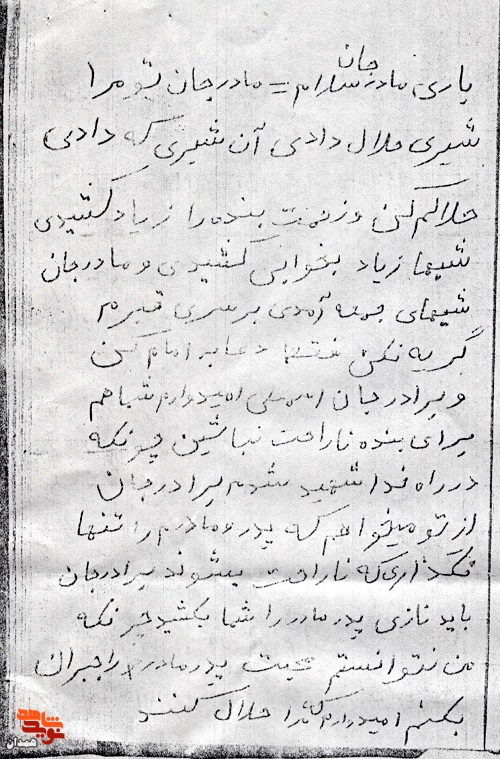 باری مادر جان سلام = مادر جان تو مرا
شیری حلال دادی آن شیری که دادی
حلالم کن و زحمت بنده را زیاد کشیدی
شبها زیاد بخوابی کشیدی و مادر جان
شبهای جمعه آمدی بر سری قبرم
گریه نکن فقط دعا به امام کن
و برادر جان امیدوارم شما هم
برای بنده ناراحت نباشین چونکه
در راه خدا شهید شدم برادر جان
از تو میخواهم که پدر و مادرم را تنها
نگذاری که ناراحت بشوند برادر جان
باید نازی پدر مادر را شما بکشید چونکه
من نتوانستم محبت پدر مادرم را جبران
بکنم امیدوارم که مرا حلال کنند
نوید شاهد
همدان